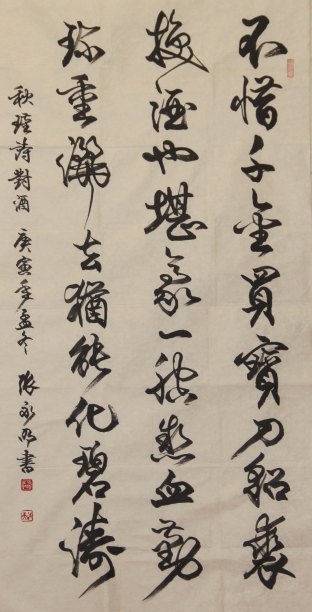 不惜千金買寶刀貂裘
換酒也堪豪一腔熱血勤
珍重灑去猶能化碧濤
秋瑾詩對酒 庚寅年孟冬 張永明書